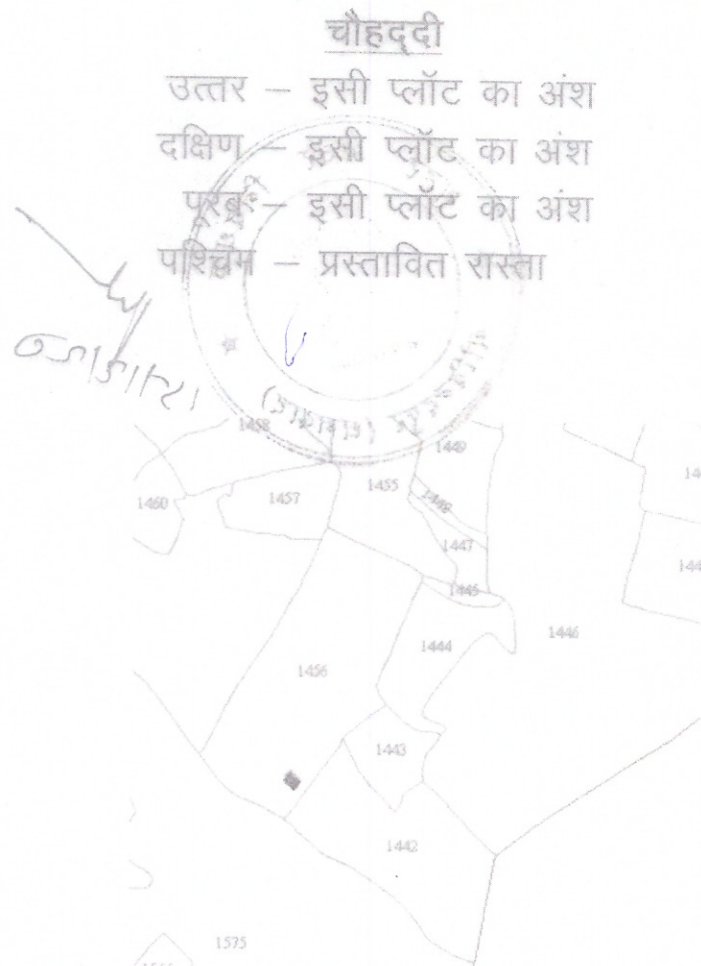 चौहद्दी
उत्तर – इसी प्लॉट का अंश
दक्षिण – इसी प्लॉट का अंश
पूरब – इसी प्लॉट का अंश
पश्चिम – प्रस्तावित रास्ता
1458
1449
1460
1457
1455
1448
1447
1445
1444
1446
1456
1443
1442
1575